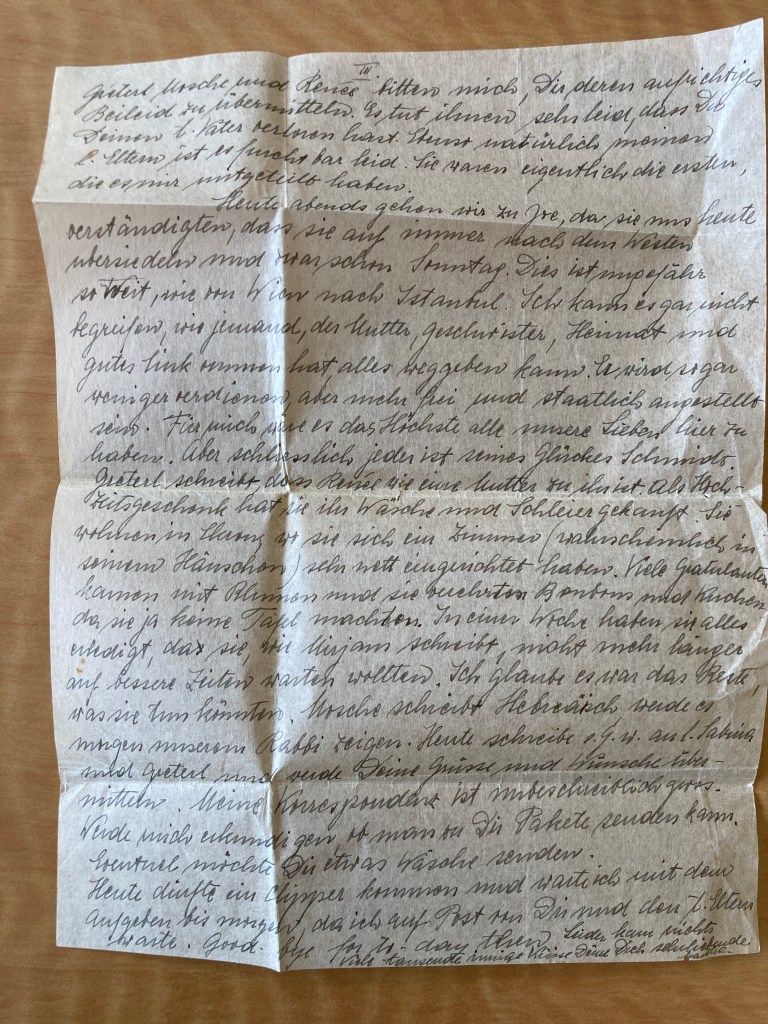 III.
Greterl, Mosche und Renée bitten mich, Dir deren aufrichtiges
Beileid zu übermitteln. Es tut ihnen sehr leid, dass Du
Deinen l. Vater verloren hast. Ebenso natürlich meinen
l. Eltern ist es furchtbar leid. Sie waren eigentlich die ersten,
die es mir mitgeteilt haben.
Heute abends gehen wir zu Joe, da sie uns heute
verständigten, dass sie auf immer nach dem Westen
übersiedeln und zwar schon Sonntag. Dies ist ungefähr
so weit, wie von Wien nach Istanbul. Ich kann es gar nicht
begreifen, wie jemand, der Mutter, Geschwister, Heimat und
gutes hat alles weggeben kann. Er wird sogar
weniger verdienen, aber mehr frei und staatlich angestellt
sein. Für mich wäre es das Höchste alle unsere Lieben hier zu
haben. Aber schliesslich jeder ist seines Glückes Schmied.
Greterl schreibt, dass Renée wie eine Mutter zu ihr ist. Als Hoch-
zeitsgeschenk hat sie ihr Wäsche und Schleier gekauft. Sie
wohnen in wo sie sich ein Zimmer (wahrscheinlich in
seinem Häuschen) sehr nett eingerichtet haben. Viele Gratulanten
kamen mit Blumen und sie Bonbons und Kuchen
da sie ja keine Tafel machten. In einer Woche haben sie alles
erledigt, da sie, wie Mirjam schreibt, nicht mehr länger
auf bessere Zeiten warten wollten. Ich glaube es war das Beste,
was sie tun könnten. Mosche schreibt Hebreäisch werde es
morgen unserem Rabbi zeigen. Heute schreibe s. G. w. an l. Sabina
und Greterl und werde Deine Grüsse und Wünsche über-
mitteln. Meine Korrespondenz ist unbeschreiblich gross.
Werde mich erkundigen, ob man Dir Pakete senden kann.
Eventuel möchte Dir etwas Wäsche senden.
Heute dürfte ein Clipper kommen und warte ich mit dem
Aufgeben bis morgen, da ich auf Post von Dir und den l. Eltern
warte. Good-bye for to-day then. Leider kam nichts
Viele tausende innige Küsse Deine Dich